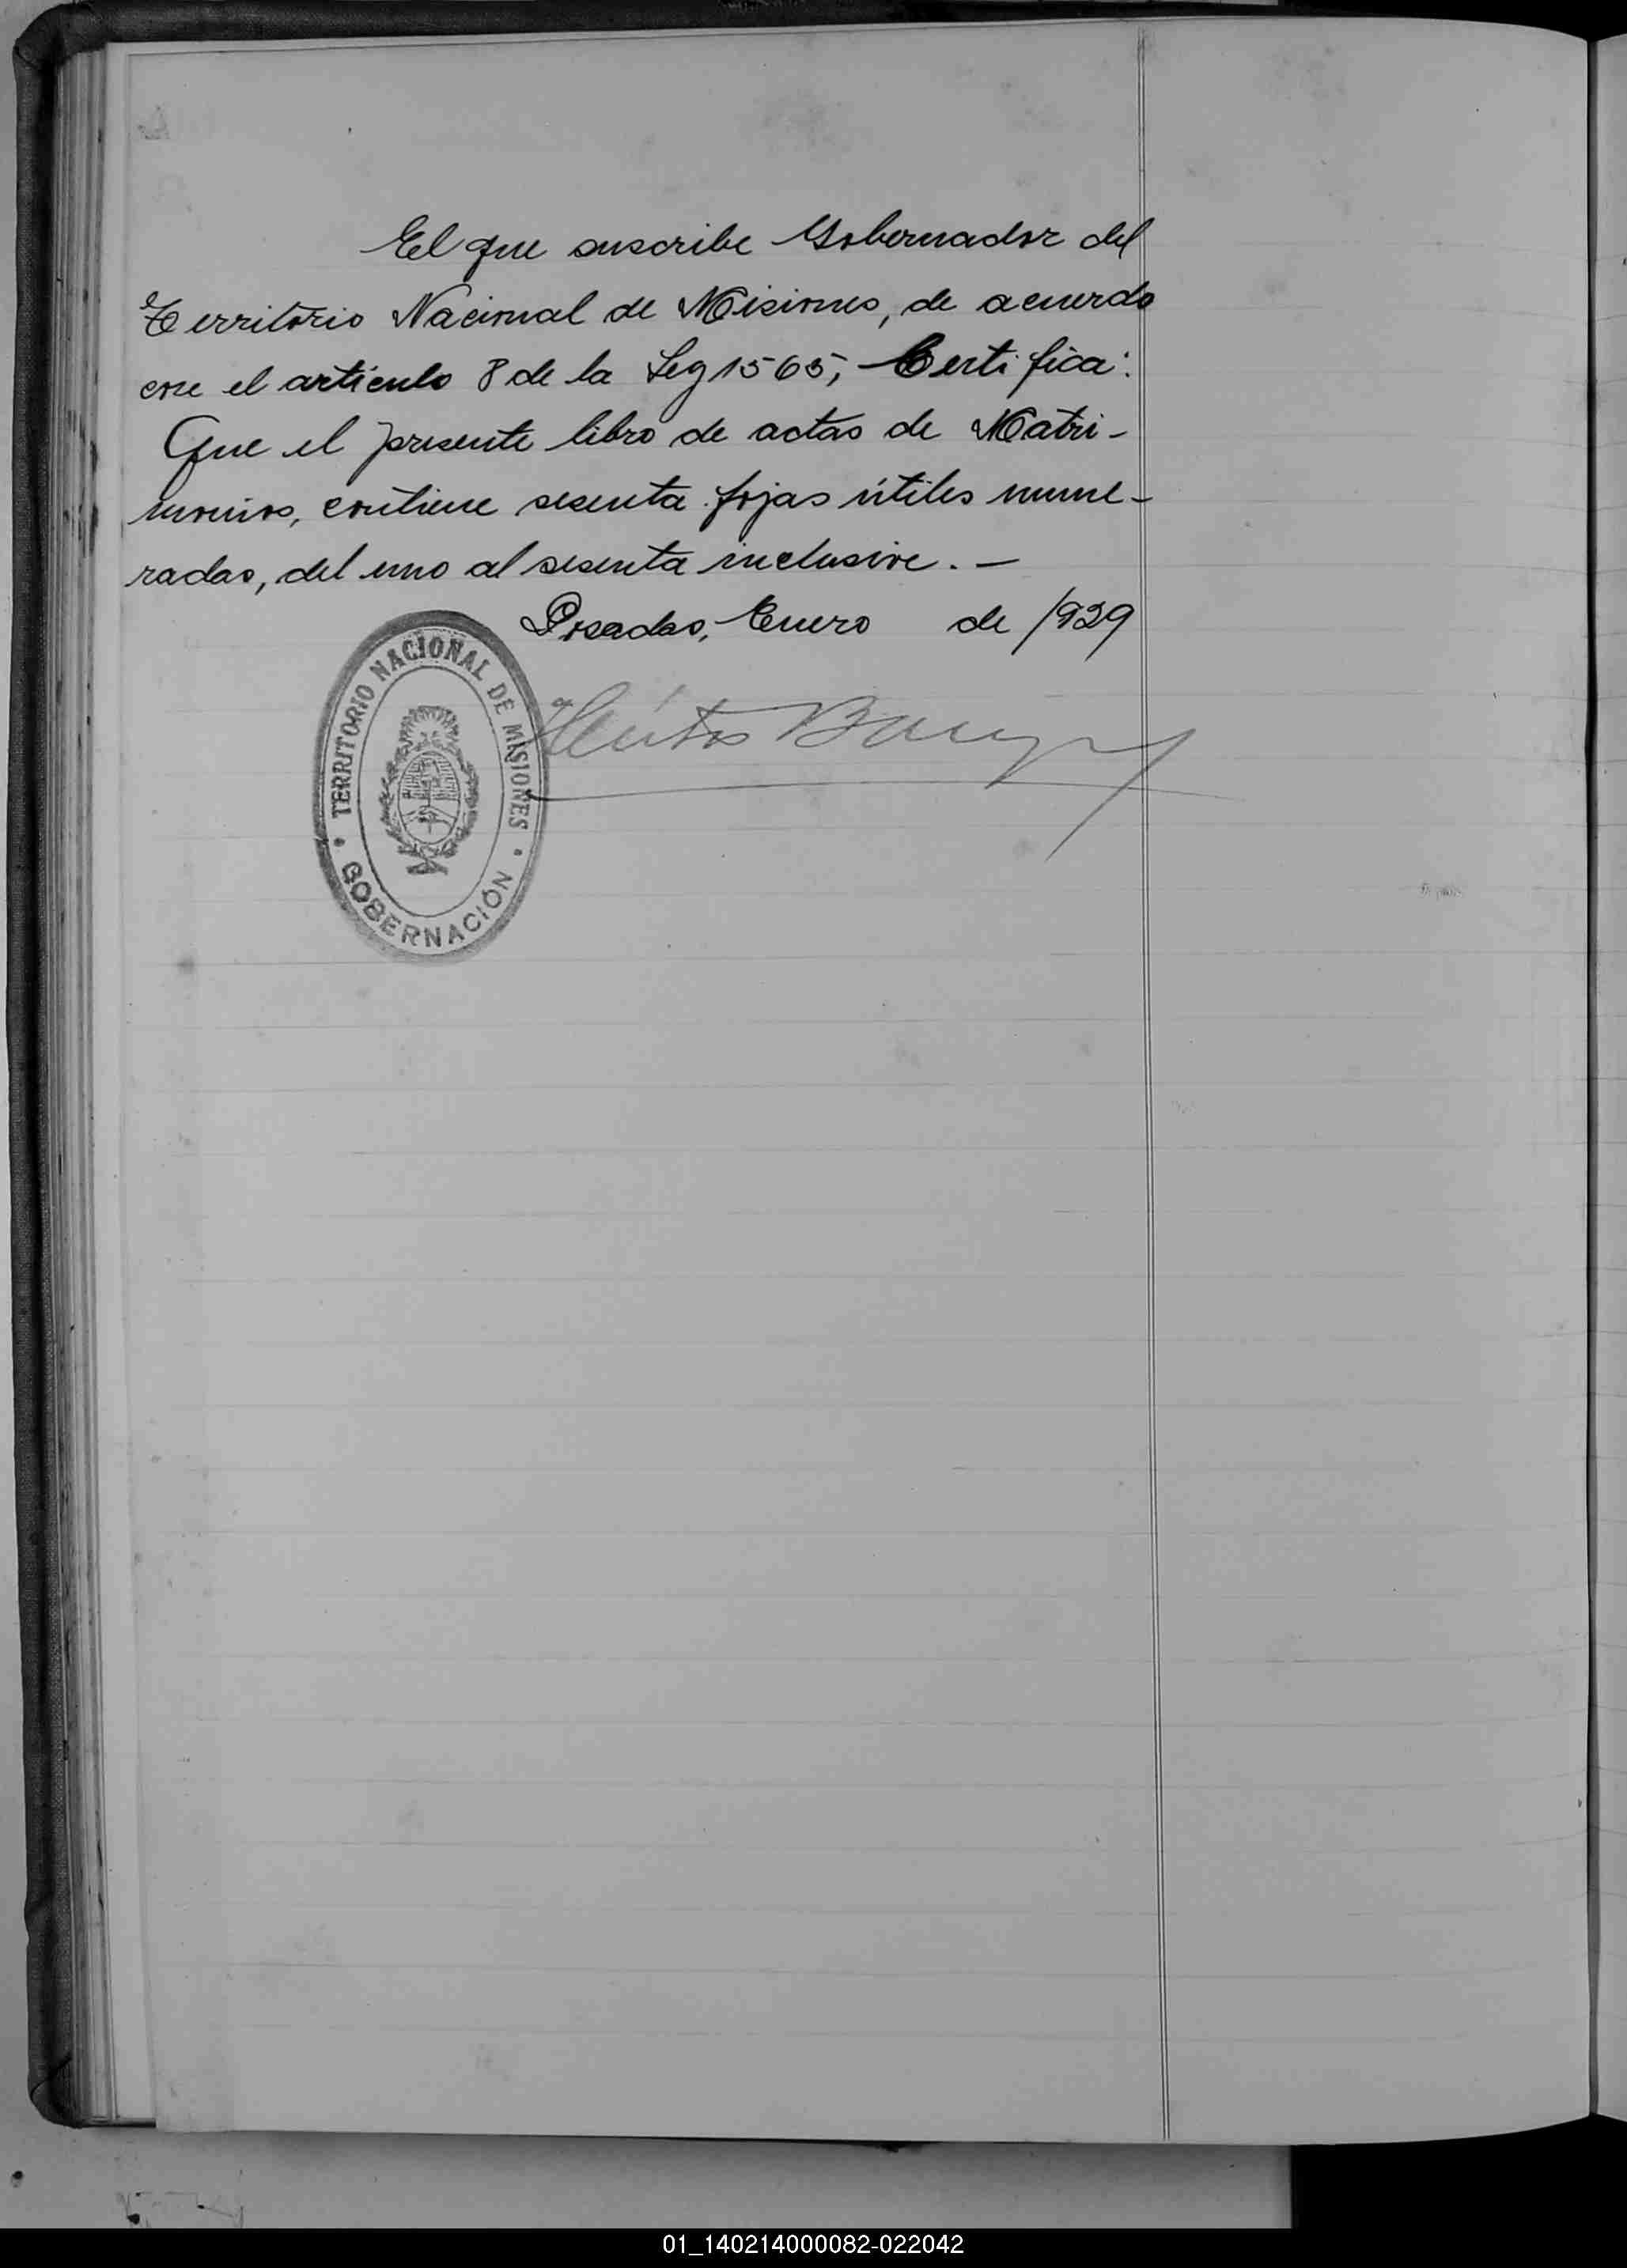 El que suscribe Gobernador del
Territorio Nacional de Misiones, de acuerdo
con el artículo 8 de la Ley 1565, Certifica:
Que el presente libro de actas de Matri-
monios, contiene sesenta fojas útiles nume-
radas, del uno al sesenta inclusive. —
Posadas, Enero de 1929
TERRITORIO NACIONAL DE MISIONES
GOBERNACIÓN
Héctor
01_140214000082-022042